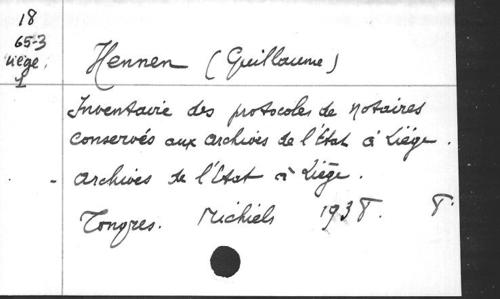 18
65-3
Liége.
1
Hennen (Guillaume)
Inventaire des protocoles de notaires
conservés aux archives de l'Etat à Liége.
- Archives de l'Etat à Liége.
Tongres. Michiels 1938. 8°